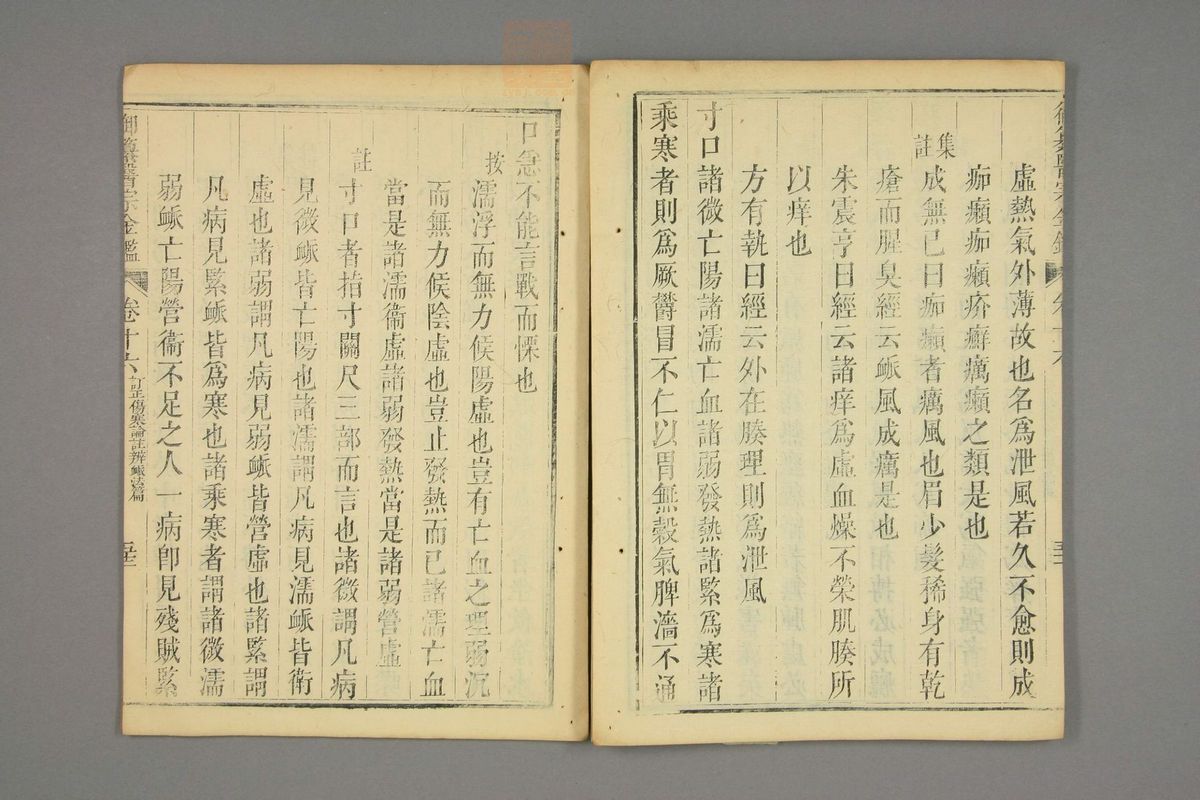 御纂醫宗金鑑 卷十六
虛熱氣外薄故也名爲泄風若久不愈則成
痂癩痂癩疥癬癘癩之類是也
集註
成無已曰痂癩者癘風也眉少髮稀身有乾
瘡而腥臭經云䘑風成癘是也
朱震亨曰經云諸痒爲虛血燥不榮肌腠所
以痒也
方有執曰經云外在腠理則爲泄風
寸口諸微亡陽諸濡亡血諸弱發熱諸緊爲寒諸
乘寒者則爲厥鬱冒不仁以胃無穀氣脾濇不通
口急不能言戰而慄也
按
濡浮而無力候陽虛也豈有亡血之理弱沉
而無力候陰虛也豈止發熱而已諸濡亡血
當是諸濡衞虛諸弱發熱當是諸弱營虛
註
寸口者指寸關尺三部而言也諸微謂凡病
見微䘑皆亡陽也諸濡謂凡病見濡䘑皆衞
虛也諸弱謂凡病見弱䘑皆營虛也諸緊謂
凡病見緊䘑皆爲寒也諸乘寒者謂諸微濡
弱䘑亡陽營衞不足之人一病卽見殘賊緊
御纂醫宗金鑑 卷十六 訂正傷寒論註辨䘑法篇